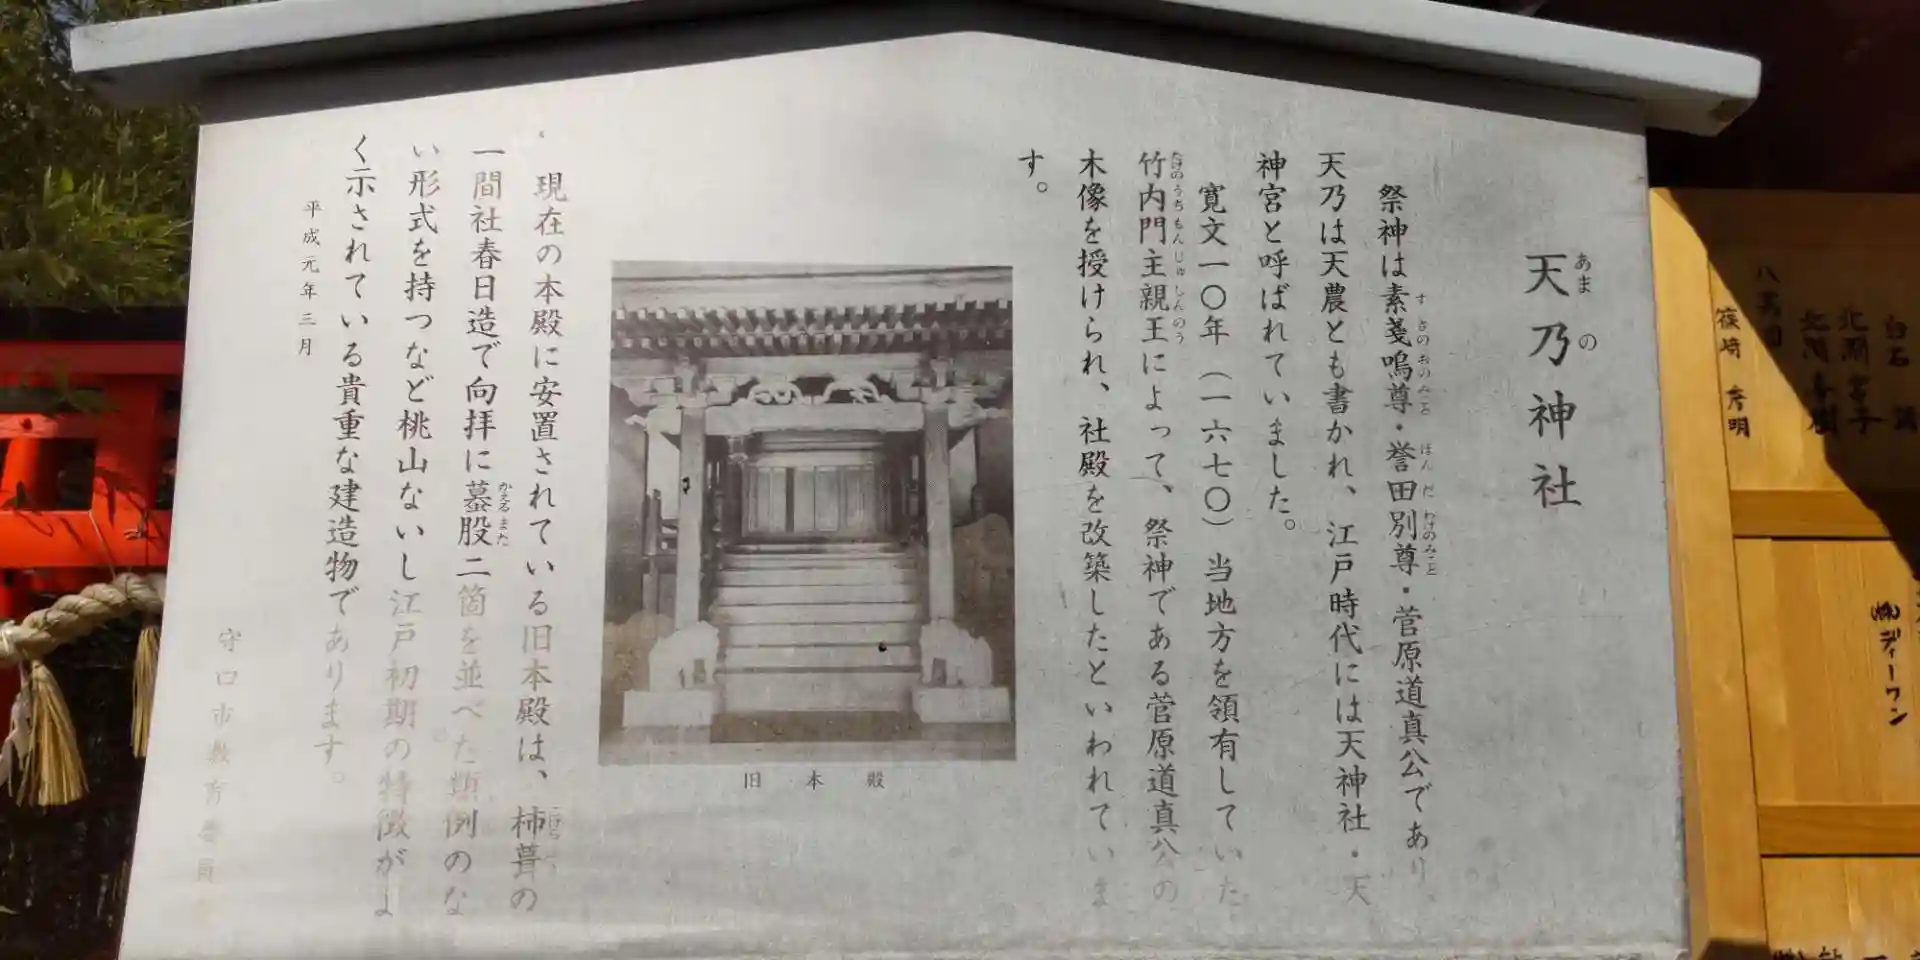 天乃神社
祭神は素戔嗚尊・誉田別尊・菅原道真公であり、
天乃は天農とも書かれ、江戸時代には天神社・天
神宮と呼ばれていました。
寛文一〇年（一六七〇）当地方を領有していた
竹内門主親王によって、祭神である菅原道真公の
木像を授けられ、社殿を改築したといわれていま
す。
旧本殿
現在の本殿に安置されている旧本殿は、柿葺の
一間社春日造で向拝に蟇股二箇を並べた類例のな
い形式を持つなど桃山ないし江戸初期の特徴がよ
く示されている貴重な建造物であります。
平成元年三月
守口市教育委員
白石
北澗宮子
篠崎 彦明
㈱ディーワン